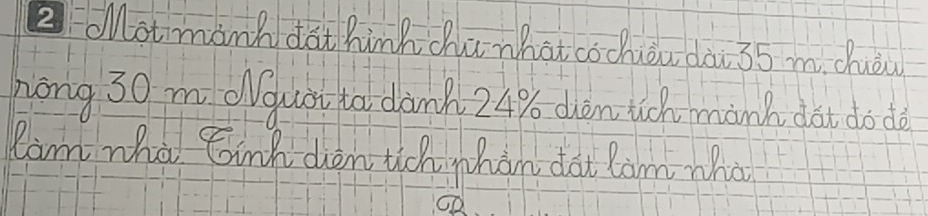 2 Một mảnh đất hình chữ nhật có chiều dài 35 m, chiều
rộng 30 m. Người ta dành 24% diện tích mảnh đất đó để
làm nhà. Tính diện tích phần đất làm nhà.